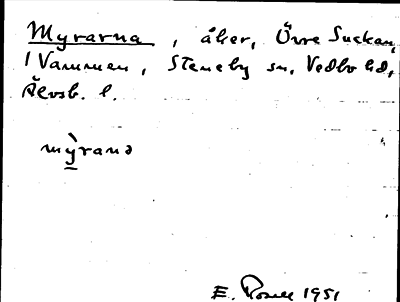 Myrarna, åker, Övre Suckan,
1 Vammen, Steneby sn, Vedbo hd,
Älvsb. l.
mỳrana
E. 1951